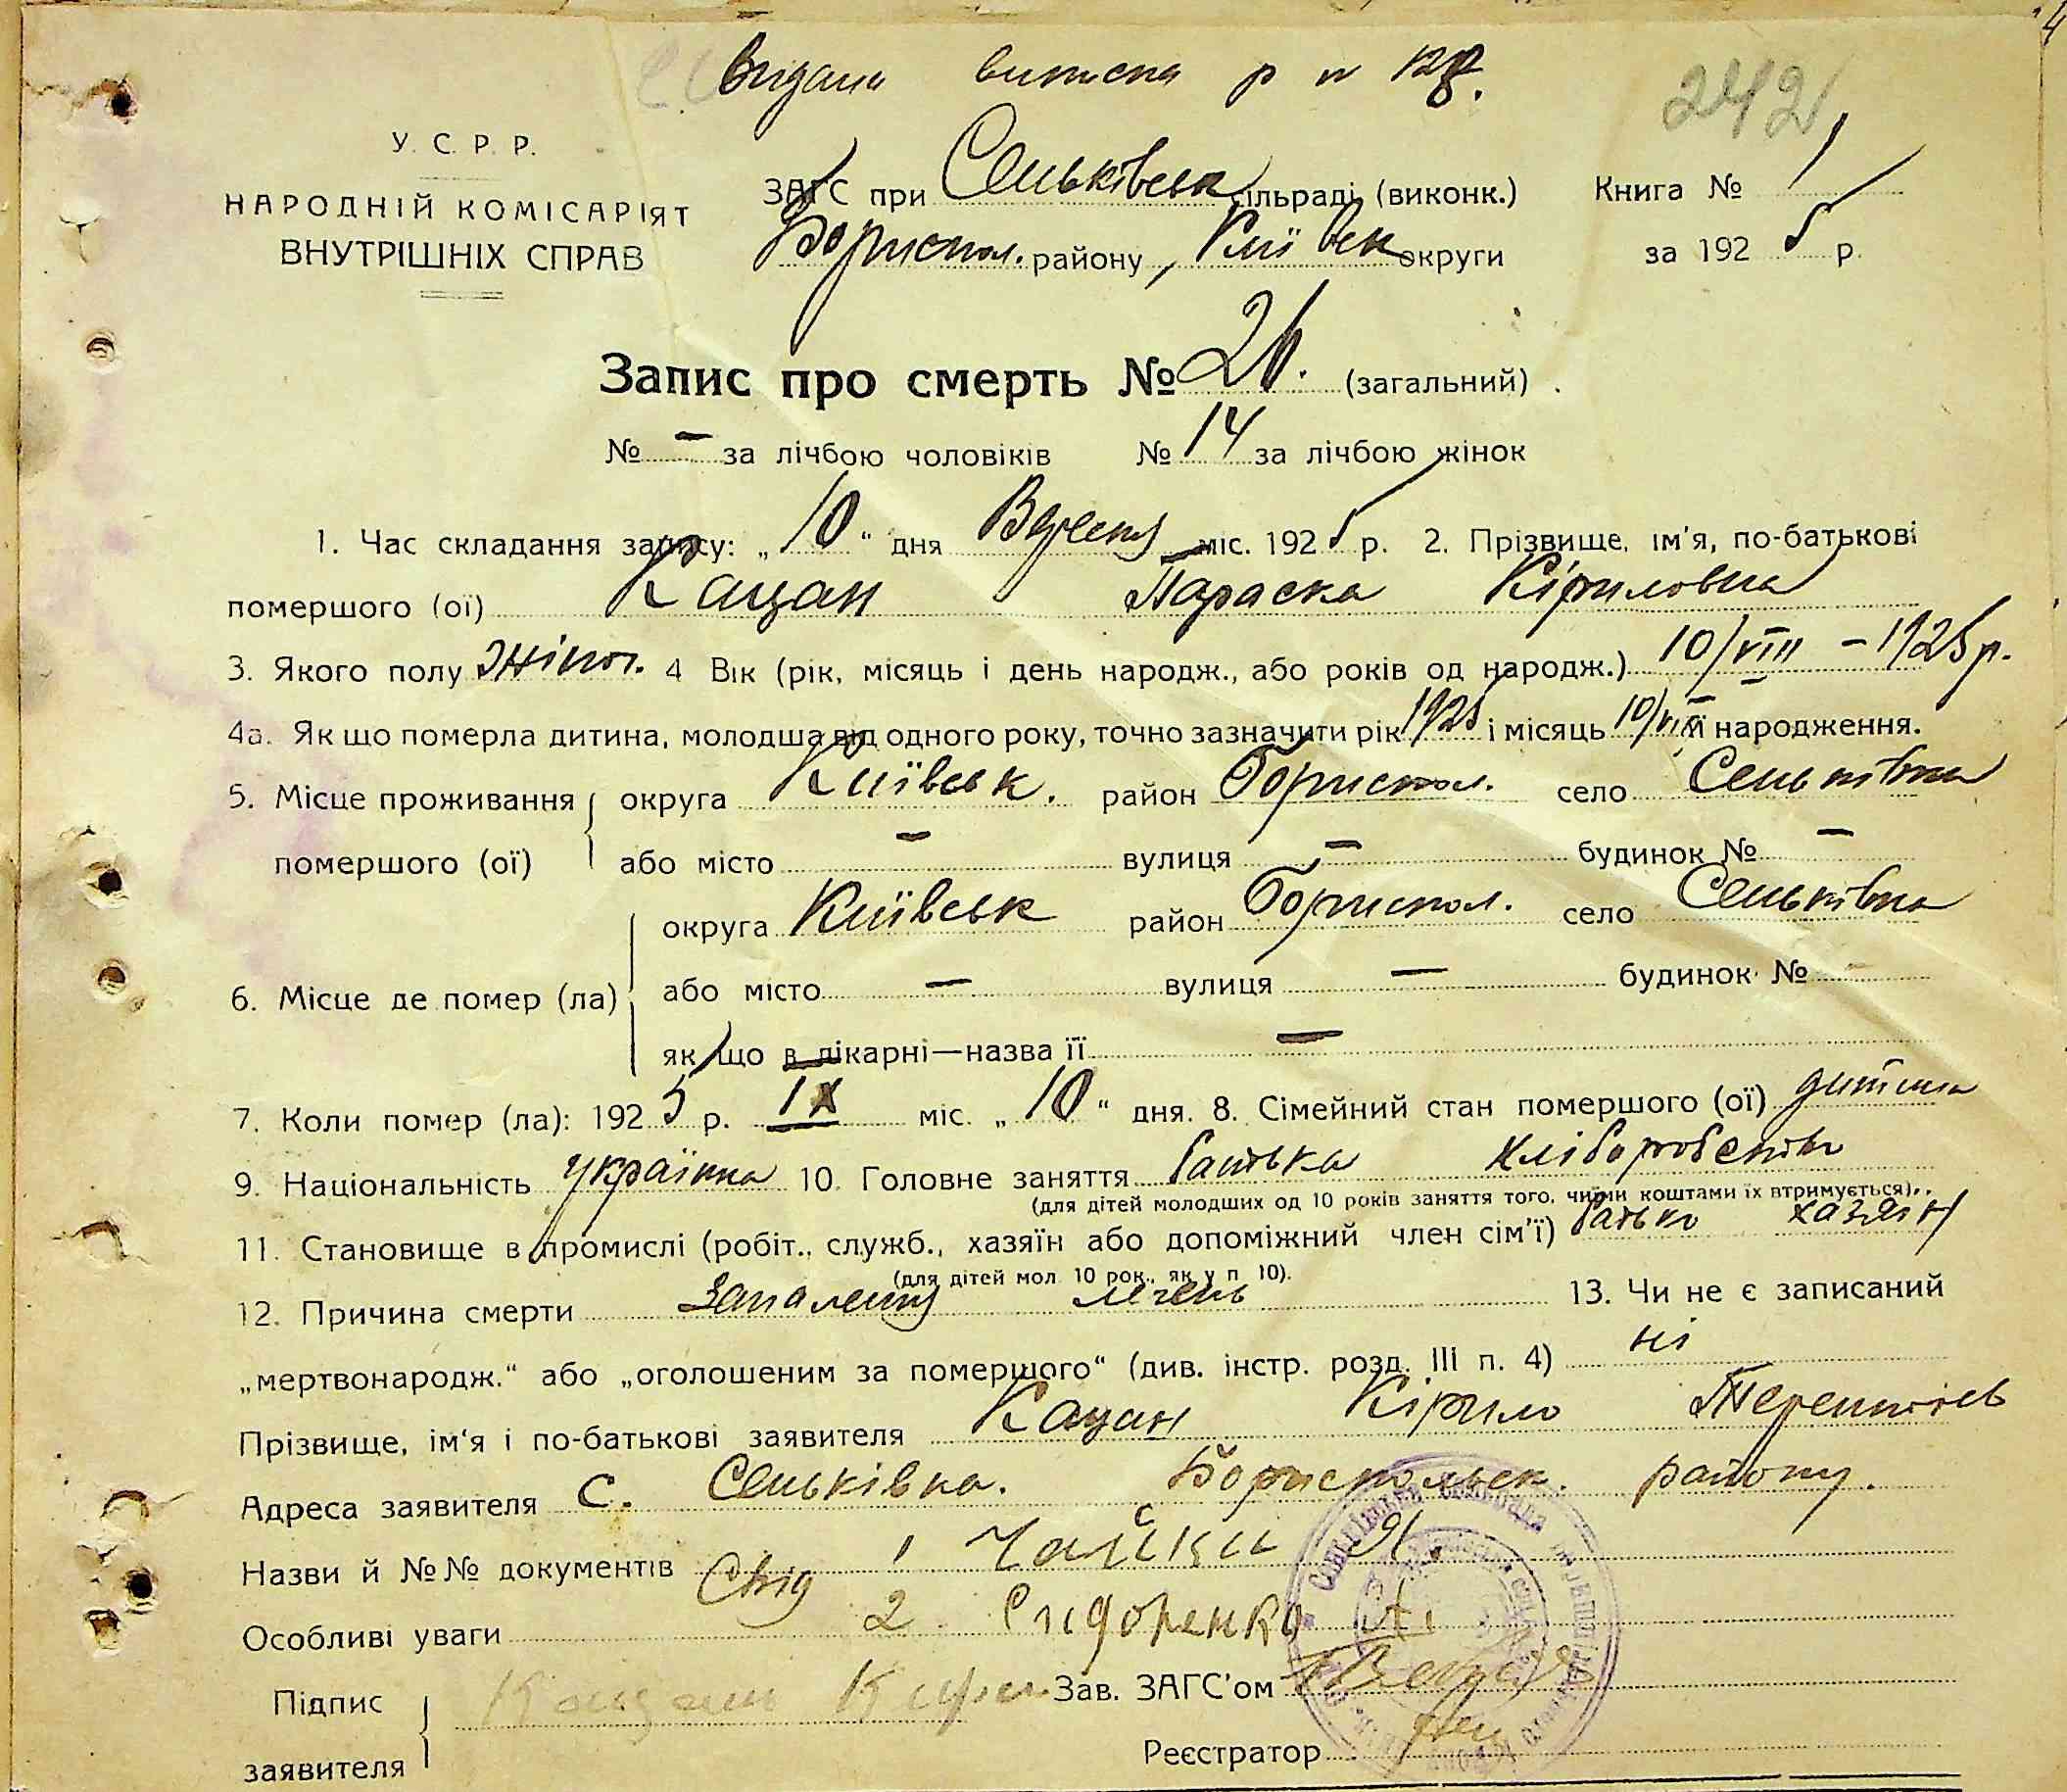 Видана виписка р н 128.
242
У. С. Р. Р.
НАРОДНІЙ КОМІСАРІЯТ
ВНУТРІШНІХ СПРАВ
ЗАГС при Сеньківськ сільраді (виконк.)
Бориспол. району, Київськ округи
Книга № 1
за 1925 р.
Запис про смерть № 26. (загальний)
№ – за лічбою чоловіків № 14 за лічбою жінок
1. Час складання запису: „10“ дня Вересня міс. 1925 р. 2. Прізвище, ім'я, по-батькові
помершого (ої) Кацан Параска Кіриловна
3. Якого полу Жіноч. 4 Вік (рік, місяць і день народж., або років од народж.) 10/VIII – 1925 р.
4а. Як що померла дитина, молодша від одного року, точно зазначити рік 1925 і місяць 10/VIII її народження.
5. Місце проживання округа Київськ. район Бориспол. село Сеньківка
помершого (ої) або місто – вулиця – будинок № –
округа Київськ район Бориспол. село Сеньківка
6. Місце де помер (ла) або місто – вулиця – будинок № –
як що в лікарні—назва її –
7. Коли помер (ла): 1925 р. IX міс. „10“ дня. 8. Сімейний стан помершого (ої) дитина
9. Національність українка 10. Головне заняття батька хліборобство
(для дітей молодших од 10 років заняття того, чиїми коштами їх втримується).
11. Становище в промислі (робіт., служб., хазяїн або допоміжний член сім'ї) батько хазяїн
(для дітей мол. 10 рок., як у п 10).
12. Причина смерти Запалення легень 13. Чи не є записаний
„мертвонародж.“ або „оголошеним за помершого“ (див. інстр. розд. III п. 4) ні
Прізвище, ім'я і по-батькові заявителя Кацан Кірило Терентіев
Адреса заявителя С. Сеньківка. Бориспольск. району.
Назви й №№ документів Свід 1 Чайки Я.
Особливі уваги 2 Сидоренко А.
Підпис
заявителя Кацан Кирил
Зав. ЗАГС'ом
Реєстратор